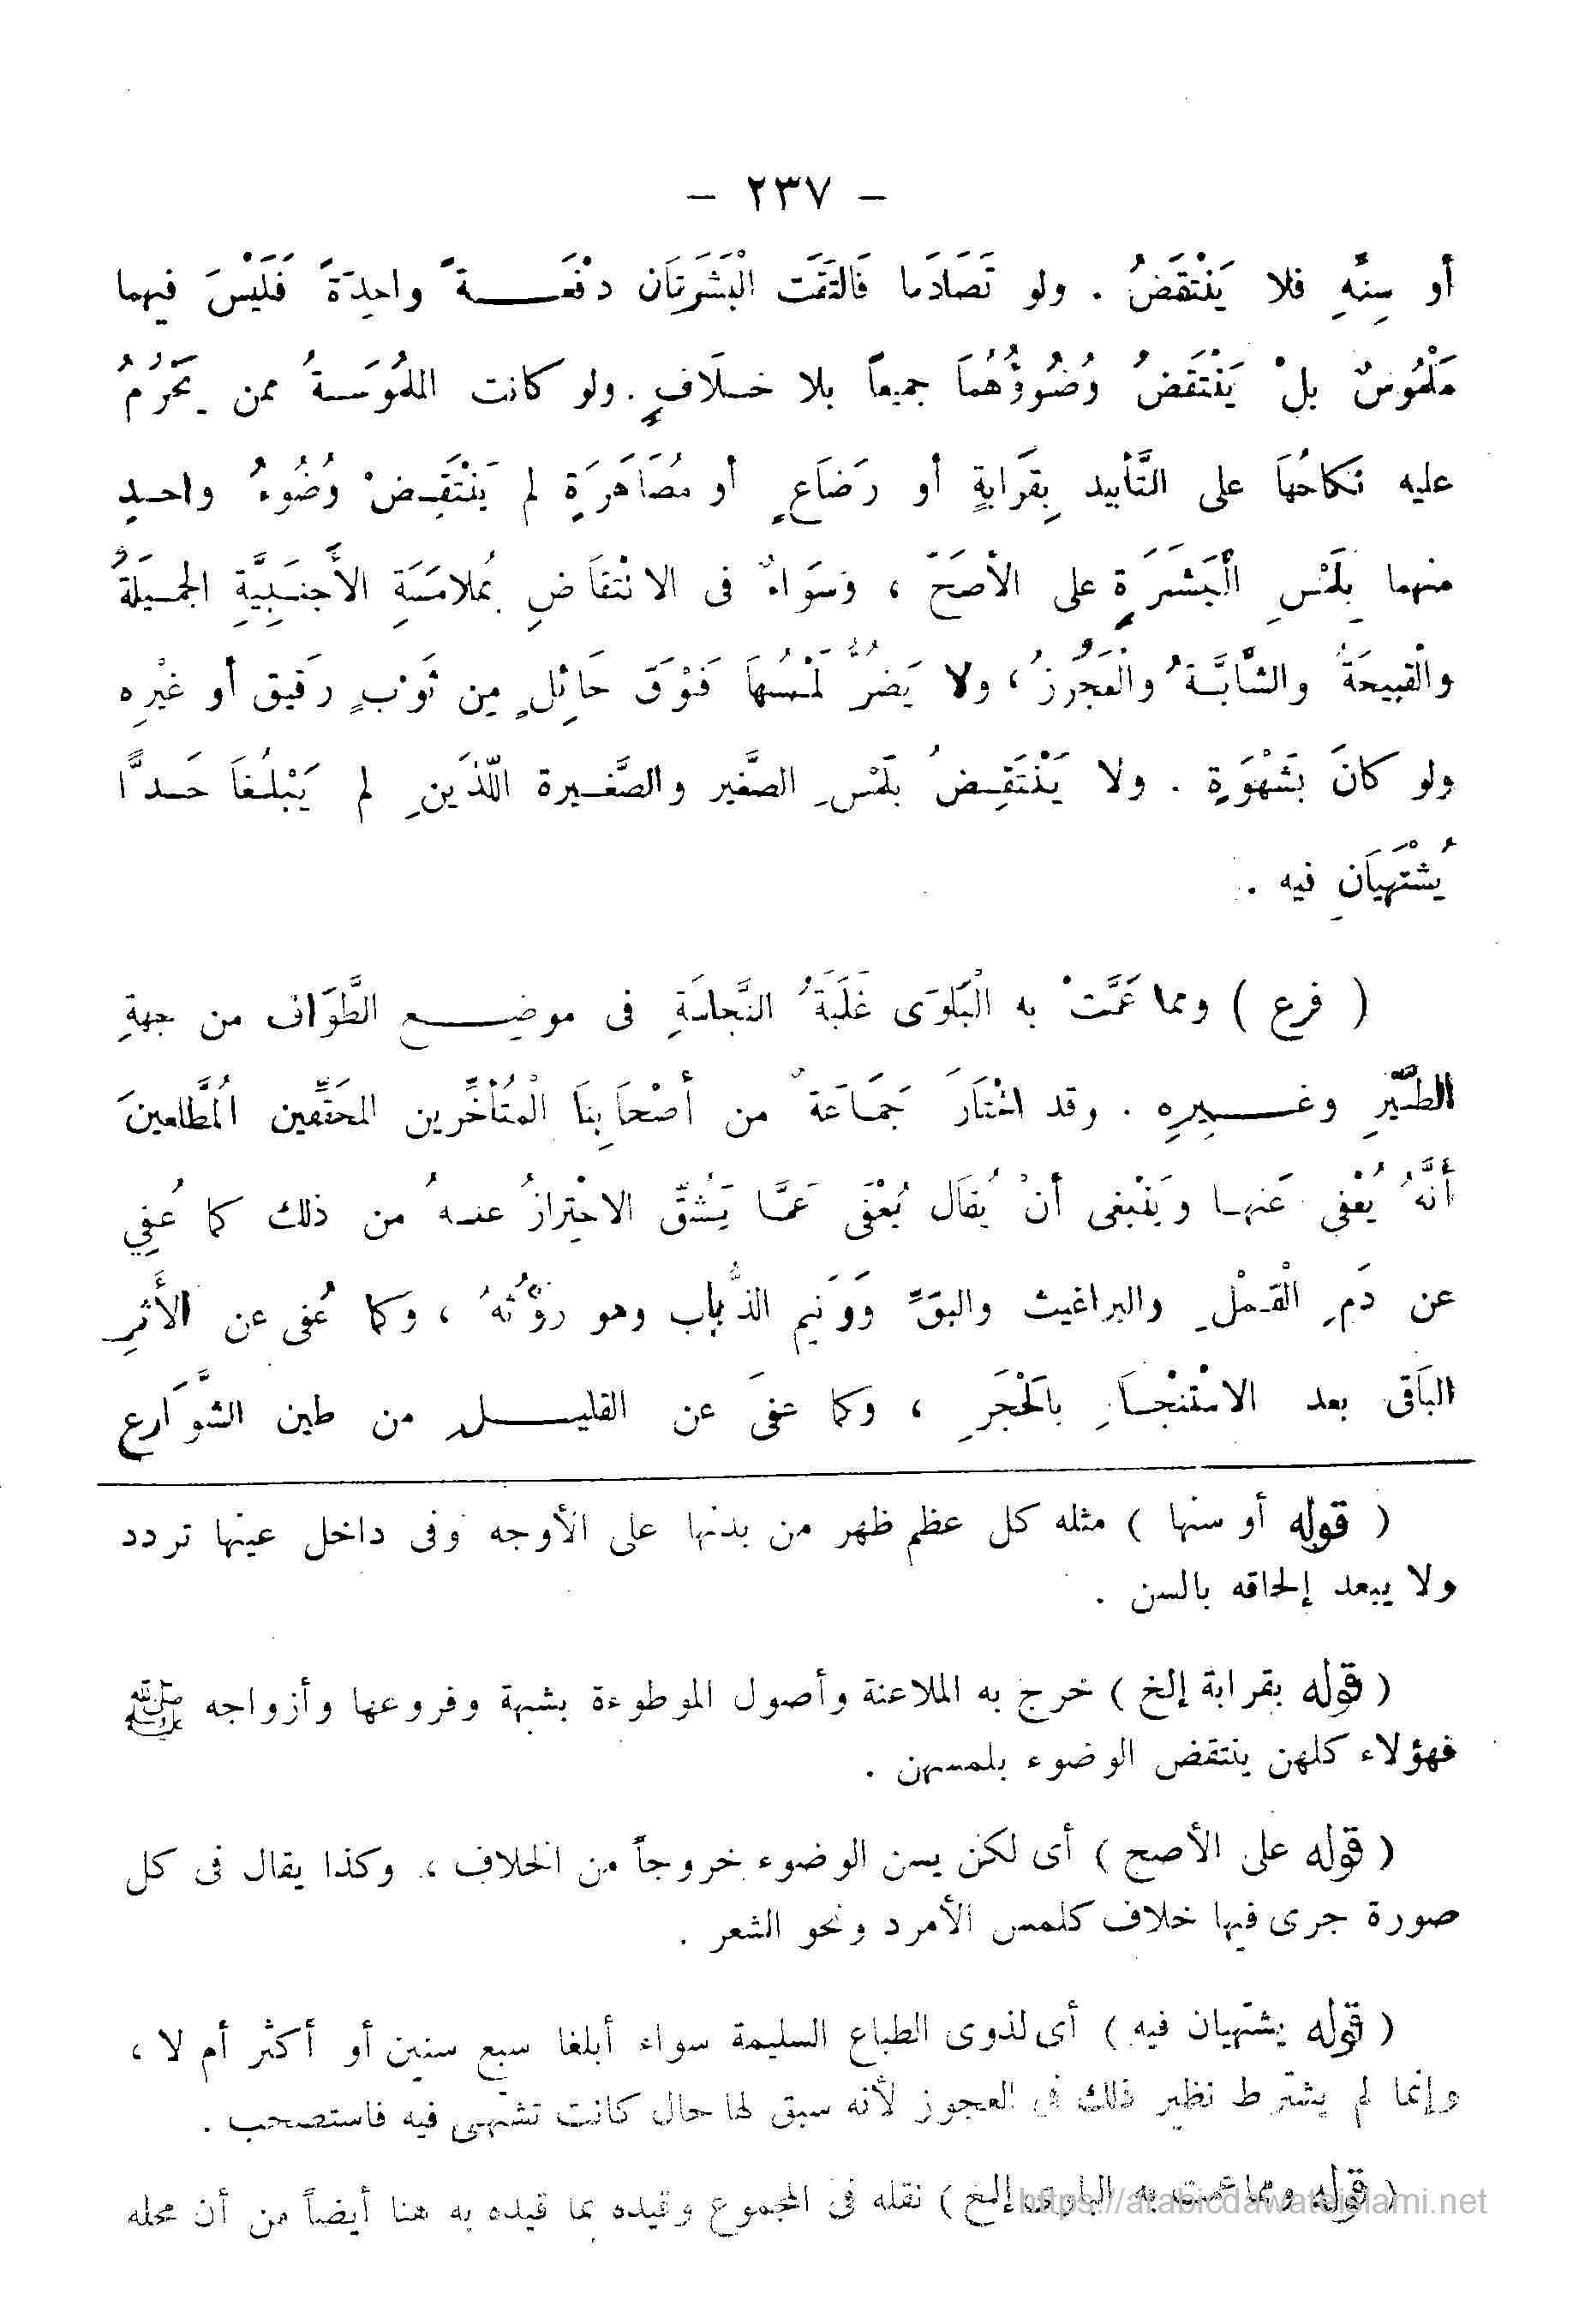 — ٢٣٧ —
أو سِنَّهِ فلا يَنْتَقِضُ . ولو تَصَادَما فَالتَقَت الْبَشَرَتَان دفْعَـةً واحِدَةً فَلَيْسَ فيهما
مَلْمُوسٌ بلْ يَنْتَقَضُ وُضُوؤُهُمَا جميعاً بلا خـلَافٍ . ولو كانت المَلْمُوسَـةُ ممن يَحْرُمُ
عليه نكَاحُهَا على التَّأبيد بِقَرَابةٍ أو رَضَاعٍ أو مُصَاهَرَةٍ لم يَنْتَقِـضْ وُضُوءُ واحـدٍ
منهما بِلَمْسِ الْبَشَرَةِ على الأصَحّ ، وَسَوَاءٌ فى الانْتقَاضِ بمُلامَسَةِ الأَجنَـبِيَّةِ الجمـيَلةُ
والْقبيحَةُ والشَّابَّـةُ والْعَجُوزُ ، ولا يَضرُّ لَمْسُهَا فَوْقَ حَائِلٍ مِن ثَوْبٍ رقيق أو غيْرِه
ولو كانَ بشَهْوَةٍ . ولا يَنْتَقِـضُ بلَمْسِ الصَّغير والصَّغـيرة اللّذَينِ لم يَبْلُـغَا حَـدًّا
يُشْتَهيَانِ فيه .
( فرع ) ومما عَمَّتْ به الْبَلوَى غَلَبَةُ النَّجاسَةِ فى موضِـع الطَّوَاف من جهةِ
الطَّيْرِ وغـيرِهِ . وقد اختَارَ جَمَـاعَةٌ من أصْحَابِنَا الْمُتَأخِّرين المحَقِّقين الْمُطَّلعينَ
أنَّهُ يُعْفى عَنهـا ويَنْبغى أنْ يُقال يُعْفَى عَمَّـا يَشُقّ الاحْتِرازُ عنـهُ من ذلك كما عُفِي
عن دَمِ الْقَـمْلِ والبراغيث والبقِّ وَوَنيم الذُّباب وهو رَوْثُهُ ، وَكما عُفى عن الأَثَرِ
البَاقى بعد الاسْتنْجَـاءِ بالْحَجَرِ ، وكما عفَى عن القليـلِ من طين الشَّوَارع
( قوله أو سنها ) مثله كل عظم ظهر من بدنها على الأوجه وفى داخل عينها تردد
ولا يبعد إلحاقه بالسن .
( قوله بقرابة إلخ ) خرج به الملاعنة وأصول الموطوءة بشبهة وفروعها وأزواجه ﷺ
فهؤلاء كلهن ينتقض الوضوء بلمسهن .
( قوله على الأصح ) أى لكن يسن الوضوء خروجاً من الخلاف ، وكذا يقال فى كل
صورة جرى فيها خلاف كلمس الأمرد ونحو الشعر .
( قوله يشتهيان فيه ) أى لذوى الطباع السليمة سواء أبلغا سبع سنين أو أكثر أم لا ،
وإنما لم يشترط نظير ذلك فى العجوز لأنه سبق لها حال كانت تشتهى فيه فاستصحب .
( قوله ومما عمت به البلوى إلخ ) نقله فى المجموع وقيده بما قيده به هنا أيضاً من أن محله
https://arabicdawateislami.net